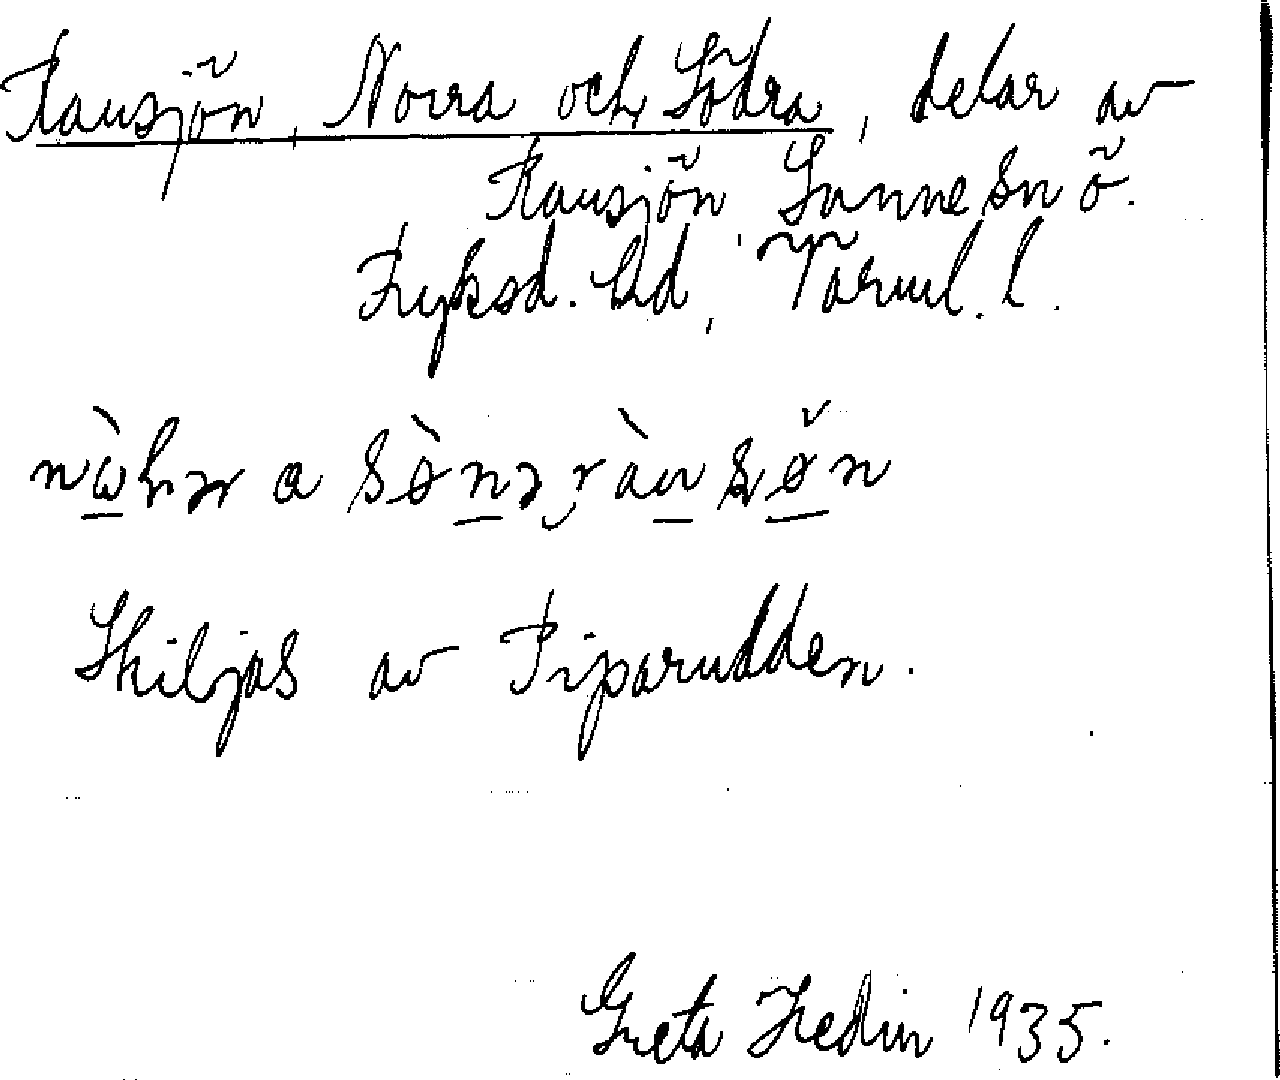 Rausjön, Norra och Södra, delar av
Rausjön, Lunne sn ö.
Fryksd. hd, Värml. l.
Skiljas av Piparudden.
Greta Hedin 1935.